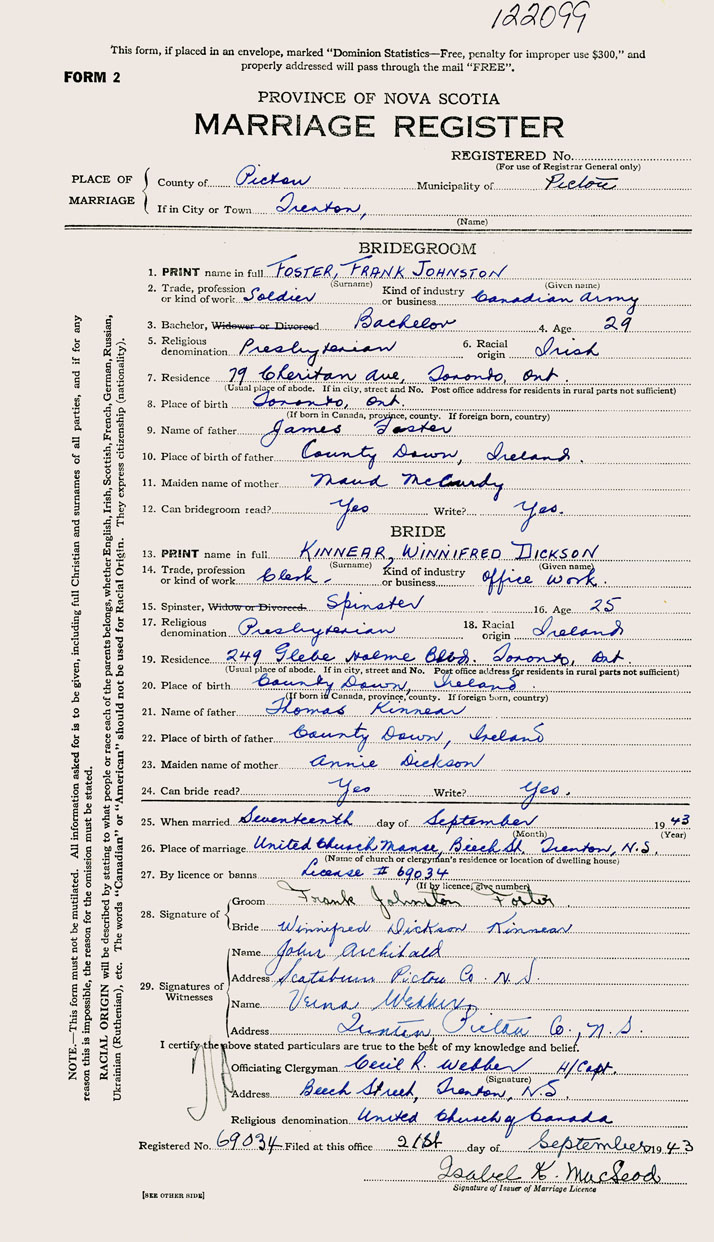 122099
This form, if placed in an envelope, marked "Dominion Statistics—Free, penalty for improper use $300," and
properly addressed will pass through the mail "FREE".
FORM 2
PROVINCE OF NOVA SCOTIA
MARRIAGE REGISTER
REGISTERED No.
(For use of Registrar General only)
PLACE OF MARRIAGE
County of Pictou Municipality of Pictou
If in City or Town Trenton,
(Name)
BRIDEGROOM
1. PRINT name in full FOSTER, FRANK JOHNSTON
(Surname) (Given name)
2. Trade, profession or kind of work Soldier Kind of industry or business Canadian Army
3. Bachelor, Widower or Divorced Bachelor 4. Age 29
5. Religious denomination Presbyterian 6. Racial origin Irish
7. Residence 79 Cheritan Ave, Toronto, Ont.
(Usual place of abode. If in city, street and No. Post office address for residents in rural parts not sufficient)
8. Place of birth Toronto, Ont.
(If born in Canada, province, county. If foreign born, country)
9. Name of father James Foster
10. Place of birth of father County Down, Ireland.
11. Maiden name of mother Maud McCurdy
12. Can bridegroom read? Yes Write? Yes.
BRIDE
13. PRINT name in full KINNEAR, WINNIFRED DICKSON
(Surname) (Given name)
14. Trade, profession or kind of work Clerk. Kind of industry or business Office Work.
15. Spinster, Widow or Divorced. Spinster 16. Age 25
17. Religious denomination Presbyterian 18. Racial origin Ireland
19. Residence 249 Glebe Holme Blvd. Toronto, Ont.
(Usual place of abode. If in city, street and No. Post office address for residents in rural parts not sufficient)
20. Place of birth County Down, Ireland.
(If born in Canada, province, county. If foreign born, country)
21. Name of father Thomas Kinnear
22. Place of birth of father County Down, Ireland
23. Maiden name of mother Annie Dickson
24. Can bride read? Yes Write? Yes.
25. When married Seventeenth day of September 1943
(Month) (Year)
26. Place of marriage United Church Manse, Beech St. Trenton, N.S.
(Name of church or clergyman's residence or location of dwelling house)
27. By licence or banns License # 69034
(If by licence, give number)
28. Signature of
Groom Frank Johnston Foster.
Bride Winnifred Dickson Kinnear
29. Signatures of Witnesses
Name John Archibald
Address Scotsburn Pictou Co. N.S.
Name Verna Webber,
Address Trenton, Pictou Co., N.S.
I certify the above stated particulars are true to the best of my knowledge and belief.
Officiating Clergyman Cecil R. Webber H/Capt.
(Signature)
Address Beech Street, Trenton, N.S.
Religious denomination United Church of Canada
Registered No. 69034 Filed at this office 21st day of September 1943
Isabel K. MacLeod
Signature of Issuer of Marriage Licence
[SEE OTHER SIDE]
NOTE.—This form must not be mutilated. All information asked for is to be given, including full Christian and surnames of all parties, and if for any
reason this is impossible, the reason for the omission must be stated.
RACIAL ORIGIN will be described by stating to what people or race each of the parents belongs, whether English, Irish, Scottish, French, German, Russian,
Ukrainian (Ruthenian), etc. The words "Canadian" or "American" should not be used for Racial Origin. They express citizenship (nationality).